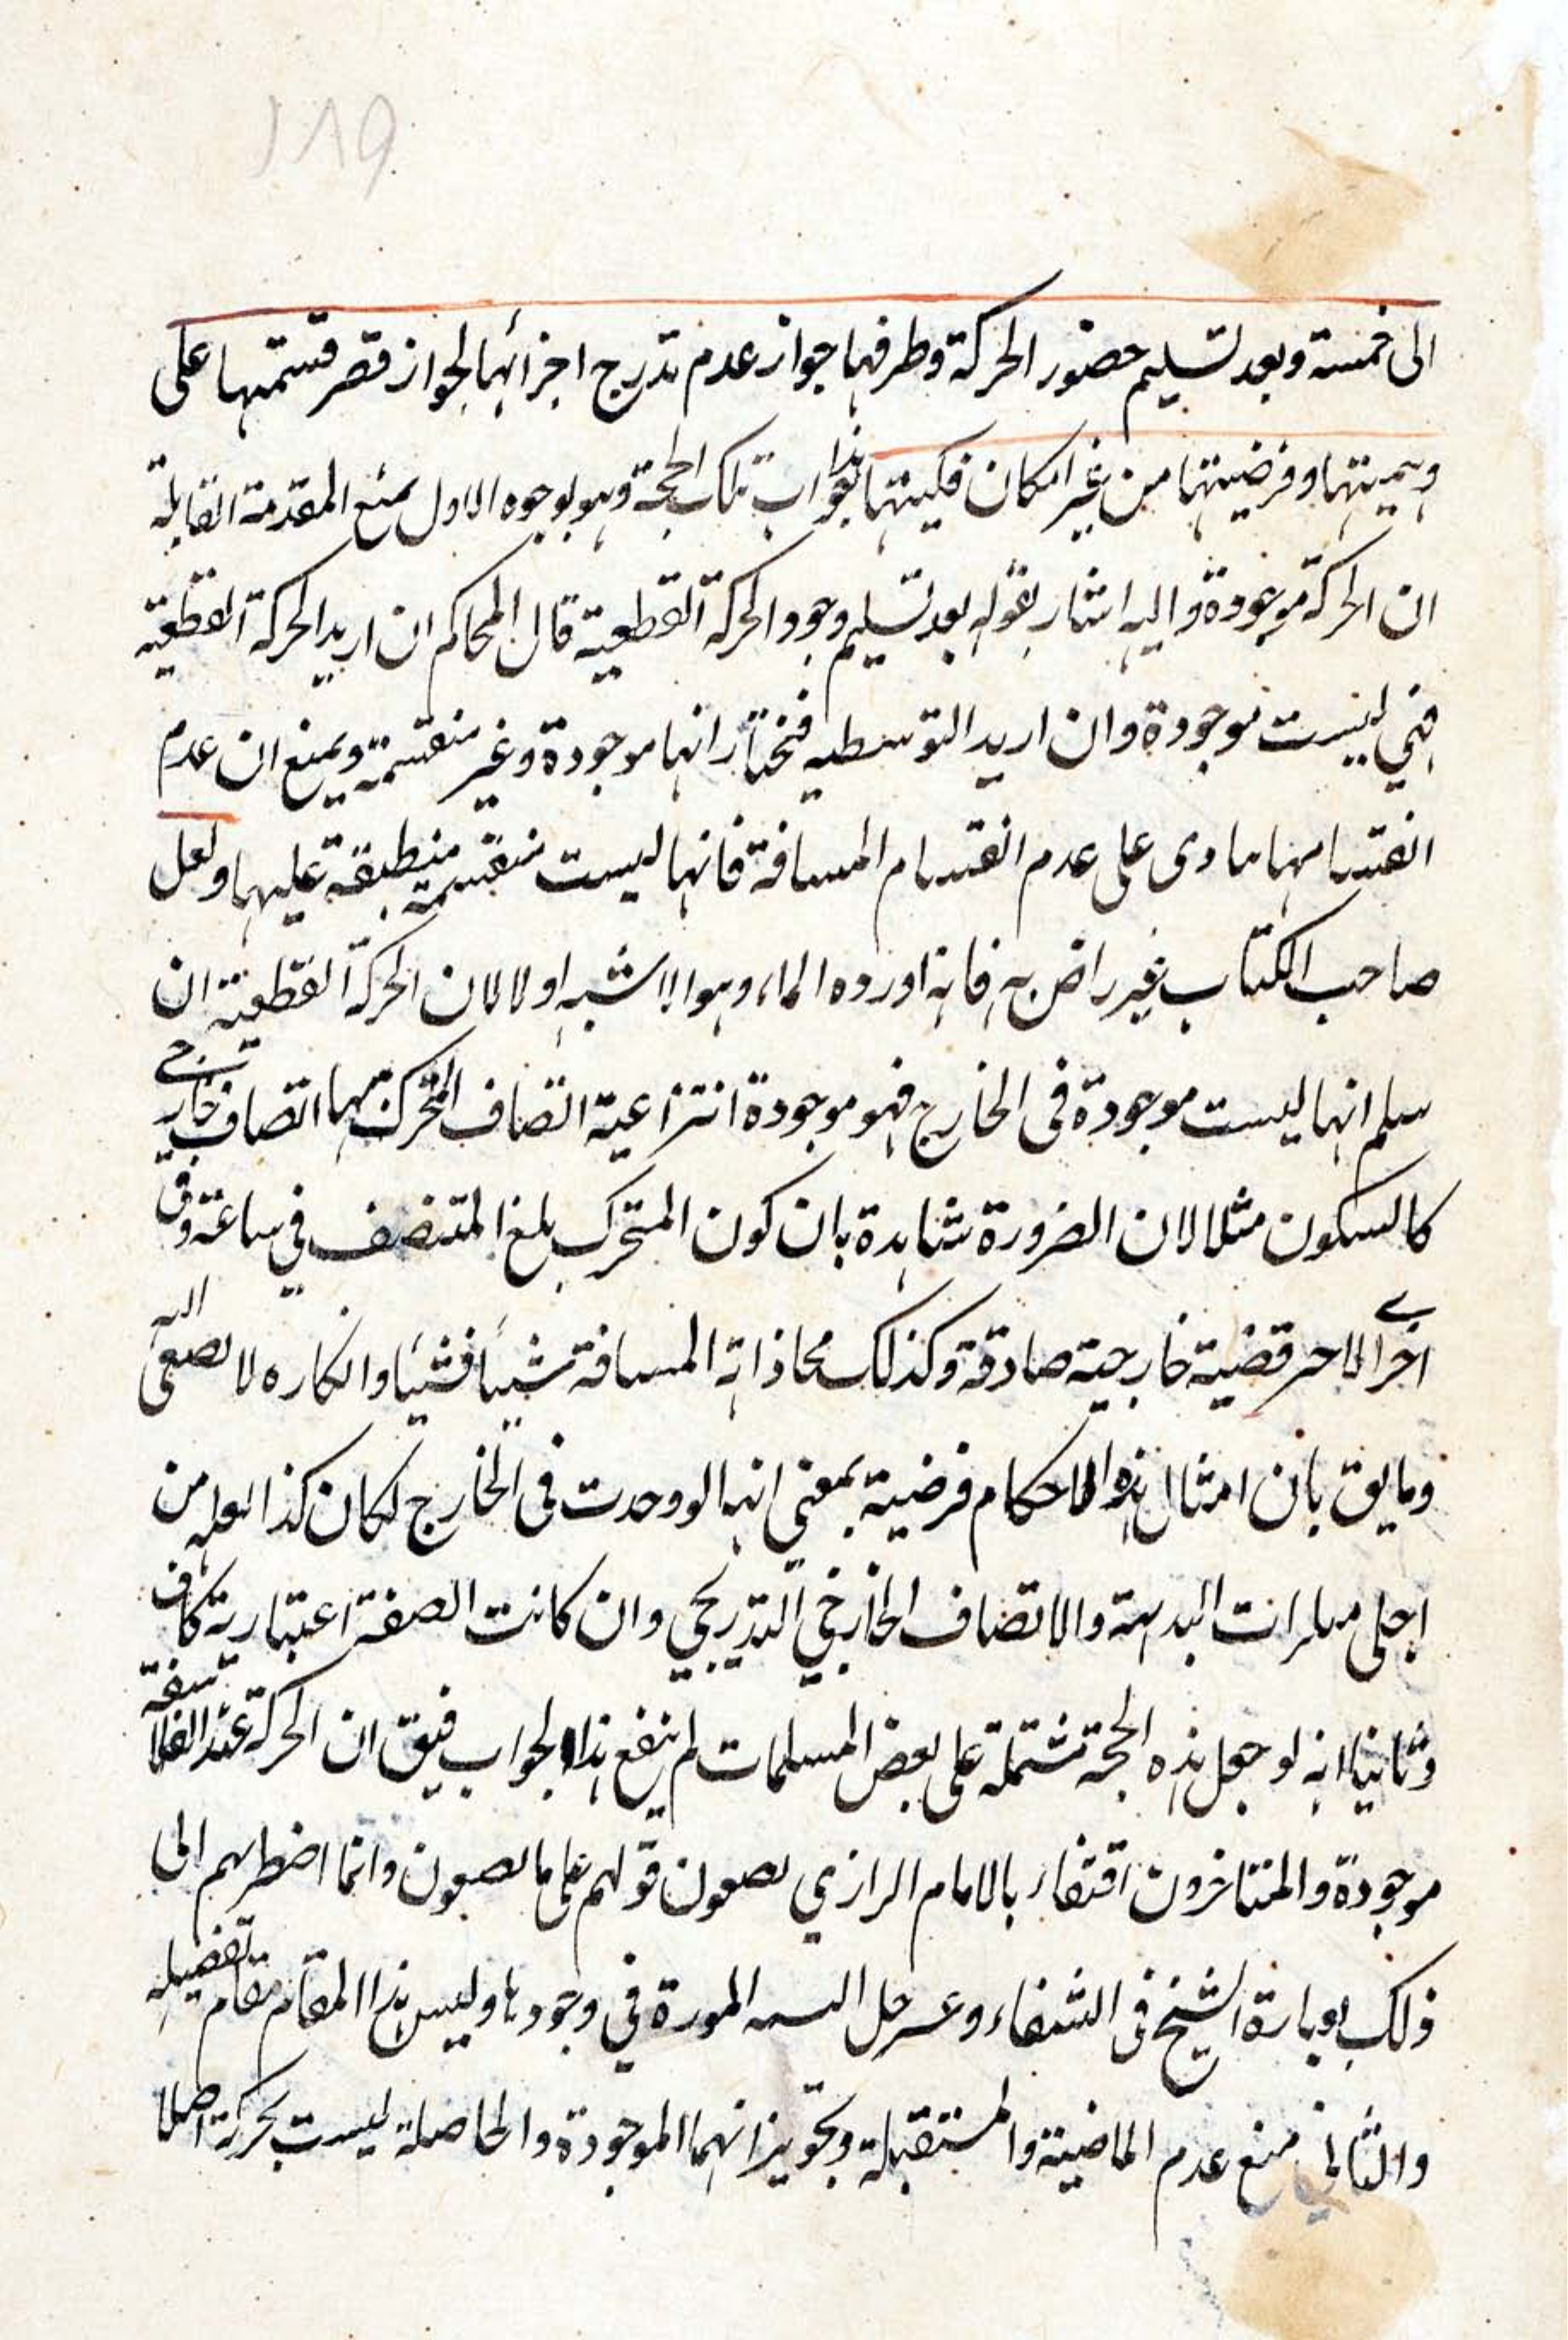 ١٨٩
الى خمسة وبعد تسليم حضور الحركة وطرفها جواز عدم تدرج اجزائها لجواز قصر قسمتها على
وهميتها وفرضيتها من غير امكان فكيتها هذا جواب تلك الحجة وهو بوجوه الاول بمنع المقدمة القايلة
ان الحركة موجودة واليه اشار بقوله بعد تسليم وجود الحركة القطعية قال المحاكم ان اريد الحركة القطعية
فهي ليست موجودة وان اريد التوسطيه فنختار انها موجودة وغير منقسمة ويمنع ان عدم
انقسامها مادى على عدم انقسام المسافة فانها ليست منقسمة منطبقة عليها ولعل
صاحب الكتاب غير راض به فانه اورده الماء وهو الاشبه اولا لان الحركة القطعية ان
سلم انها ليست موجودة فى الخارج فهو موجودة انتزاعية اتصاف المتحرك بها اتصاف خارجي
كالسكون مثلا لان الضرورة شاهدة بان كون المتحرك بلغ المتنصف في ساعة وفى
اخرى الاحر قضية خارجية صادقة وكذلك محاذاته المسافة شيئا فشيئا وانكاره لا يصغى اليه
وما يق بان امثال هذه الاحكام فرضية بمعنى انها لو وجدت فى الخارج لكان كذا لعله من
اجلى البديهة والاتصاف الخارجي التدريجي وان كانت الصفة اعتبارية كاف
وثانيا انه لو جعل هذه الحجة مشتملة على بعض المسلمات لم ينفع هذا الجواب فيق ان الحركة عند الفلاسفة
موجودة والمتاخرون اقتفار بالامام الرازي قولهم على ما وانما اضطرهم الى
ذلك عبارة الشيخ فى الشفاء حل الموردة في وجودها وليس هذا المقام مقام تفصيله
والثاني منع عدم الماضية والمستقبلة وتجويز انهما الموجودة والحاصلة ليست بحركة اصلا